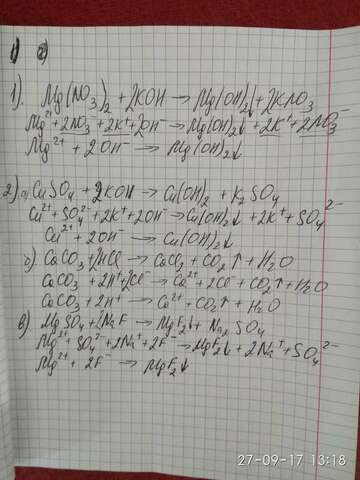 1). Mg(NO₃)₂ + 2KOH → Mg(OH)₂↓ + 2KNO₃
Mg²⁺ + 2NO₃⁻ + 2K⁺ + 2OH⁻ → Mg(OH)₂↓ + 2K⁺ + 2NO₃⁻
Mg²⁺ + 2OH⁻ → Mg(OH)₂↓
2. а) CuSO₄ + 2KOH → Cu(OH)₂ + K₂SO₄
Cu²⁺ + SO₄²⁻ + 2K⁺ + 2OH⁻ → Cu(OH)₂↓ + 2K⁺ + SO₄²⁻
Cu²⁺ + 2OH⁻ → Cu(OH)₂↓
б) CaCO₃ + 2HCl → CaCl₂ + CO₂↑ + H₂O
CaCO₃ + 2H⁺ + 2Cl⁻ → Ca²⁺ + 2Cl⁻ + CO₂↑ + H₂O
CaCO₃ + 2H⁺ → Ca²⁺ + CO₂↑ + H₂O
в) MgSO₄ + 2NaF → MgF₂↓ + Na₂SO₄
Mg²⁺ + SO₄²⁻ + 2Na⁺ + 2F⁻ → MgF₂↓ + 2Na⁺ + SO₄²⁻
Mg²⁺ + 2F⁻ → MgF₂↓
27-09-17 13:18